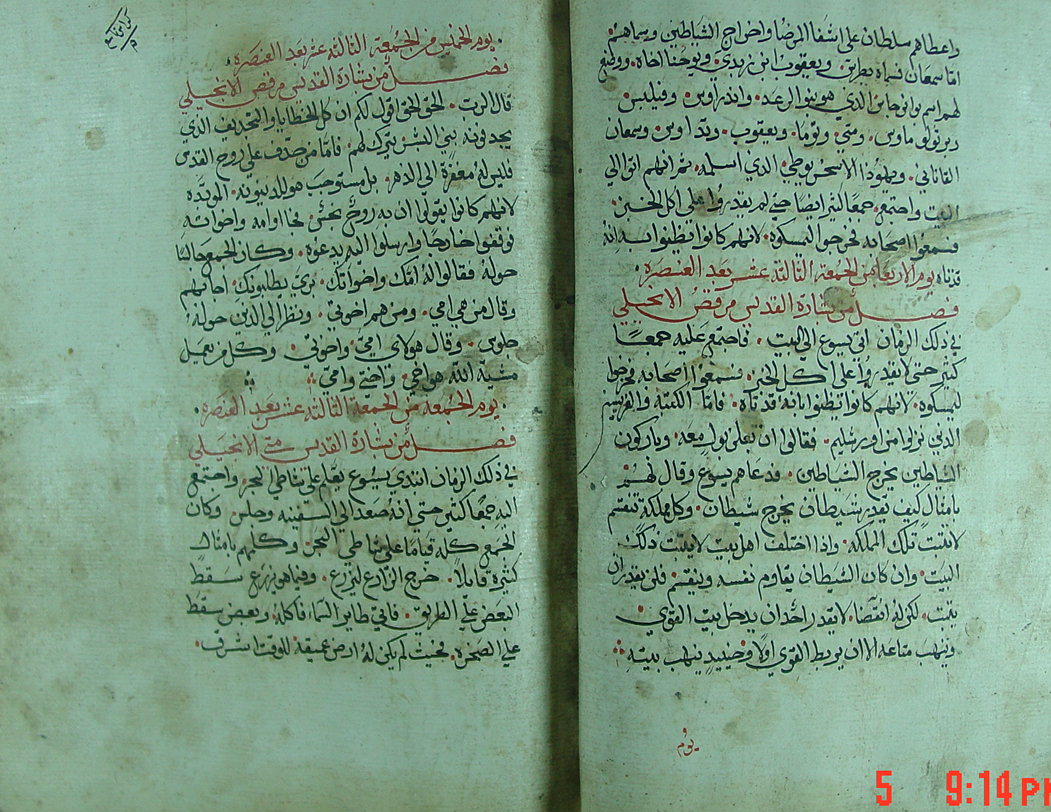 واعطاهم سلطان على اشفا المرضا واخراج الشياطين وسماهم
امّا سمعان فسماه بطرس ويعقوب ابن زبدي ويوحنا اخاه ووضع
لهم اسم بوانرجاس الذي هو بنو الرعد واندراوس وفيلبس
وبرتولوماوس ومتي وتوما ويعقوب وتداوس وسمعان
القاناني ويهوذا الاسخريوطي الذي اسلمه ثم انهم اتوا الي
البيت واجتمع جمعًا كثير ايضا حتي لم يقدروا على اكل الخبز
فسمعوا اصحابه فخرجوا ليمسكوه لانهم كانوا يظنوا انه انه
قد تاه يوم الاربعا من الجمعة الثالثة عشر بعد العنصرة
فصل من بشارة القديس مرقص الانجيلي
في ذلك الزمان اتي يسوع الي البيت فاجتمع عليه جمعًا
كثير حتى لا يقدروا على اكل الخبز فسمعوا اصحابه فخرجوا
ليمسكوه لانهم كانوا يظنوا انه قد تاه فامّا الكتبة والفريسيين
الذي نزلوا من اورشليم فقالوا ان بعلزبول معه وباركون
الشياطين يخرج الشياطين فدعاهم يسوع وقال لهم
بامثال كيف يقدر شيطان يخرج شيطان وكل مملكة تنقسم
لا تثبت تلك المملكه واذا اختلف اهل بيت لا يثبت ذلك
البيت وان كان الشيطان يقاوم نفسه وينقسم فلن يقدر ان
يثبت لكن له انقضا لا يقدر احدًا ان يدخل بيت القوي
وينهب متاعه الا ان يربط القوي اولاً وحينيدٍ ينهب بيته
يوم
يوم الخميس من الجمعة الثالثة عشر بعد العنصرة
فصل من بشارة القديس مرقص الانجيلي
قال الرب الحق الحق اقول لكم ان كل الخطايا والتجديف الذي
يجدفونه بني البشر يترك لهم فامّا من جدف على روح القدس
فليس له مغفرة الي الدهر بل مستوجب هو للدينونه الموبّده
لانهم كانوا يقولوا ان به روحٌ نجسٌ فجاوا امه واخواته
فوقفوا خارجا وارسلوا اليه يدعوه وكان الجمع جالسًا
حوله فقالوا له امّك واخواتك برّي يطلبونك اجابهم
وقال من هي امي ومن هم اخوتي ونظر الي الذين حوله
جلوس وقال هولاي امي واخوتي وكل من يعمل
مشية الله هو اخي واختي وامي
يوم الجمعه من الجمعة الثالثة عشر بعد العنصره
فصل من بشارة القديس متي الانجيلي
في ذلك الزمان ابتدي يسوع يعلم على شاطي البحر واجتمع
اليه جمعًا كثير حتي انه صعد الي السفينه وجلس وكان
الجمع كله قيامًا على شاطي البحر وكلمهم بامثال
كثيرة قايلاً خرج الزارع ليزرع وفيما هو يزرع سقط
البعض علي الطريق فاتي طاير السما فاكله وبعض سقط
على الصخره بحيث لم يكن له ارض عميقة للوقت اشرف
5 9:14 PM